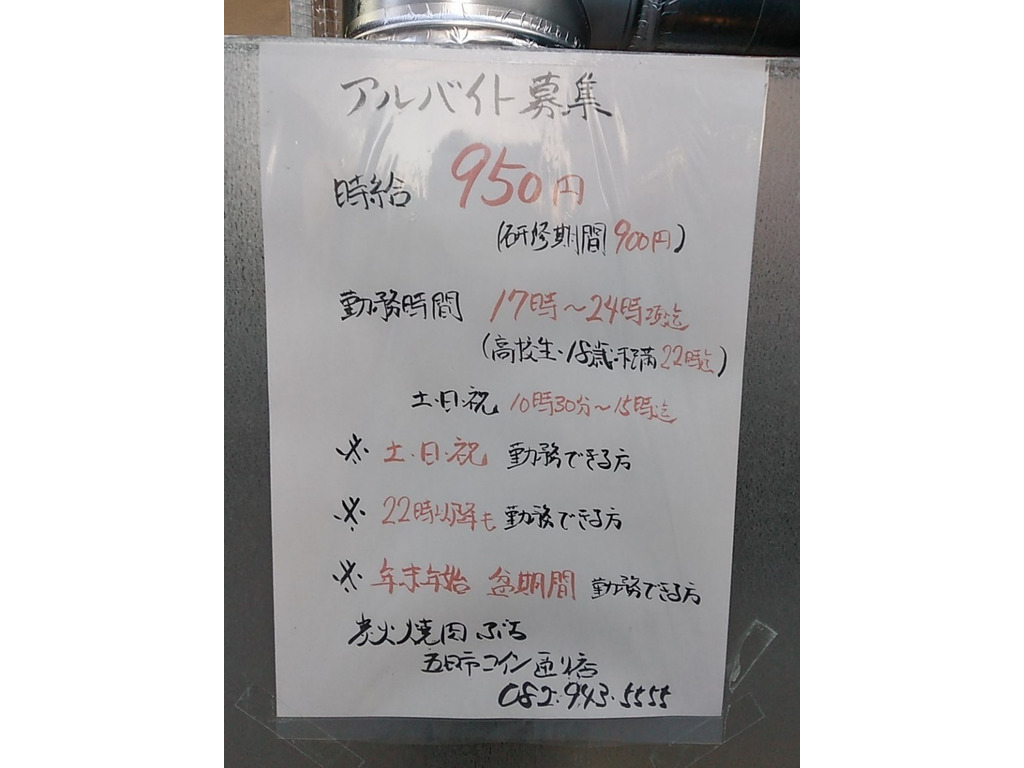 アルバイト募集
時給 950円
(研修期間900円)
勤務時間 17時〜24時頃迄
(高校生・18歳未満22時迄)
土・日・祝 10時30分〜15時迄
※ 土・日・祝 勤務できる方
※ 22時以降も勤務できる方
※ 年末年始 盆期間 勤務できる方
炭火焼肉ぶち
五日市コイン通り店
082・943・5555